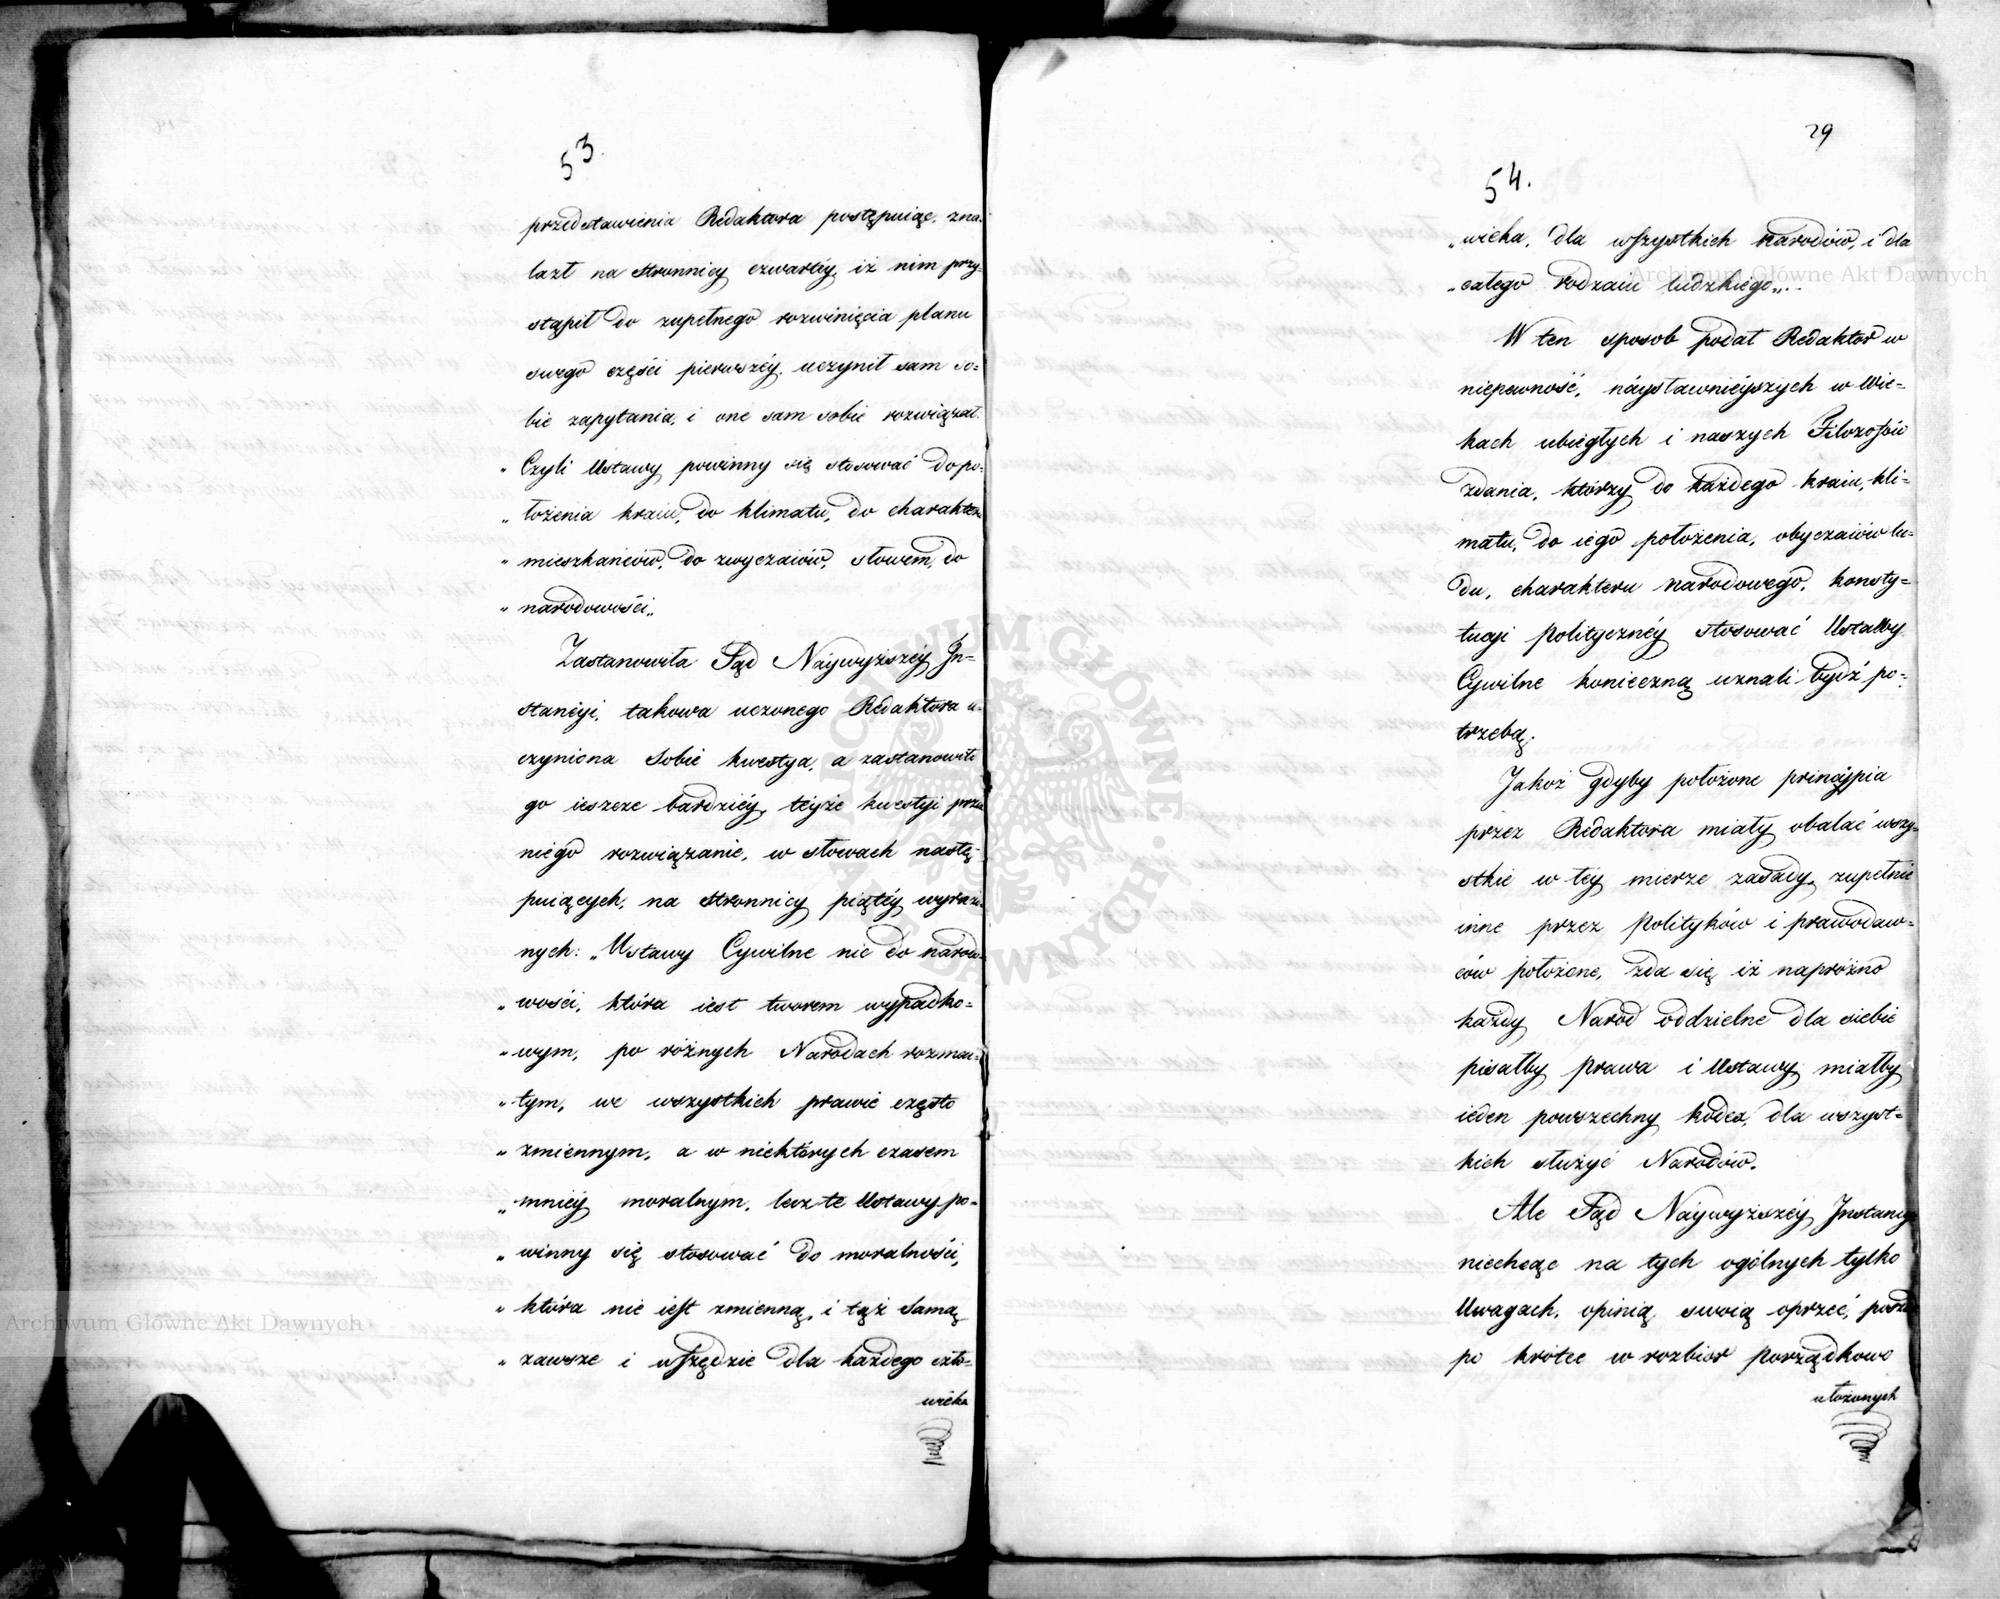 53.
przedstawienia Redaktora postępuiąc, zna-
lazł na stronnicy czwartéy, iż nim przy-
stąpił do zupełnego rozwinięcia planu
swego części pierwszéy, uczynił sam so-
bie zapytania, i one sam sobie rozwiązał.
„ Czyli Ustawy powinny się stosować do po-
„ łożenia kraiu, do klimatu, do charakteru
„ mieszkańców, do zwyczaiów, słowem, do
„ narodowości„
Zastanowiła Sąd Náywyższéy In-
stancyi, takowa uczonego Redaktora u-
czyniona sobie kwestya, a zastanowiło
go ieszcze bardziéy, téyże kwestyi przez
niego rozwiązanie, w słowach nastę-
puiących, na stronnicy piątéy, wyrażo-
nych: „Ustawy Cywilne nie do narodo-
„ wości, która iest tworem wypadko-
„ wym, po różnych Narodach rozmai-
„ tym, we wszystkich prawie często
„ zmiennym, a w niektórych czasem
„ mniéy moralnym, lecz te Ustawy po-
„ winny się stosować do moralności,
„ która nie iest zmienną, i táż samą
„ zawsze i wszędzie dla każdego czło-
wieka
29
54.
„ wieka, dla wszystkich narodów, i dla
„ całego rodzaiu ludzkiego„.
W ten sposob podał Redaktor w
niepewność, náysławniéyszych w wie-
kach ubiegłych i naszych Filozofów
zdania, którzy do każdego kraiu, kli-
matu, do iego położenia, obyczaiów lu-
du, charakteru narodowego, konsty-
tucyi polityczнéy stosować Ustawy
Cywilne konieczną uznali bydź po-
trzebą.
Jakoż gdyby położone principia
przez Redaktora miały obalać wszy-
stkie w téy mierze zasady, zupełnie
inne przez Polityków i prawodaw-
ców położone, zda się iż napróżno
każdy Narod oddzielne dla siebie
pisałby prawa i Ustawy, miałby
ieden powszechny kodex, dla wszyst-
kich służyć Narodów.
Ale Sąd Náywyższéy Instancyi
niechcąc na tych ogólnych tylko
Uwagach, opinią swoią oprzéć,
po krótce w rozbior porządkowo
ułożonych
Archiwum Główne Akt Dawnych
Archiwum Główne Akt Dawnych
ARCHIWUM GŁÓWNE AKT DAWNYCH